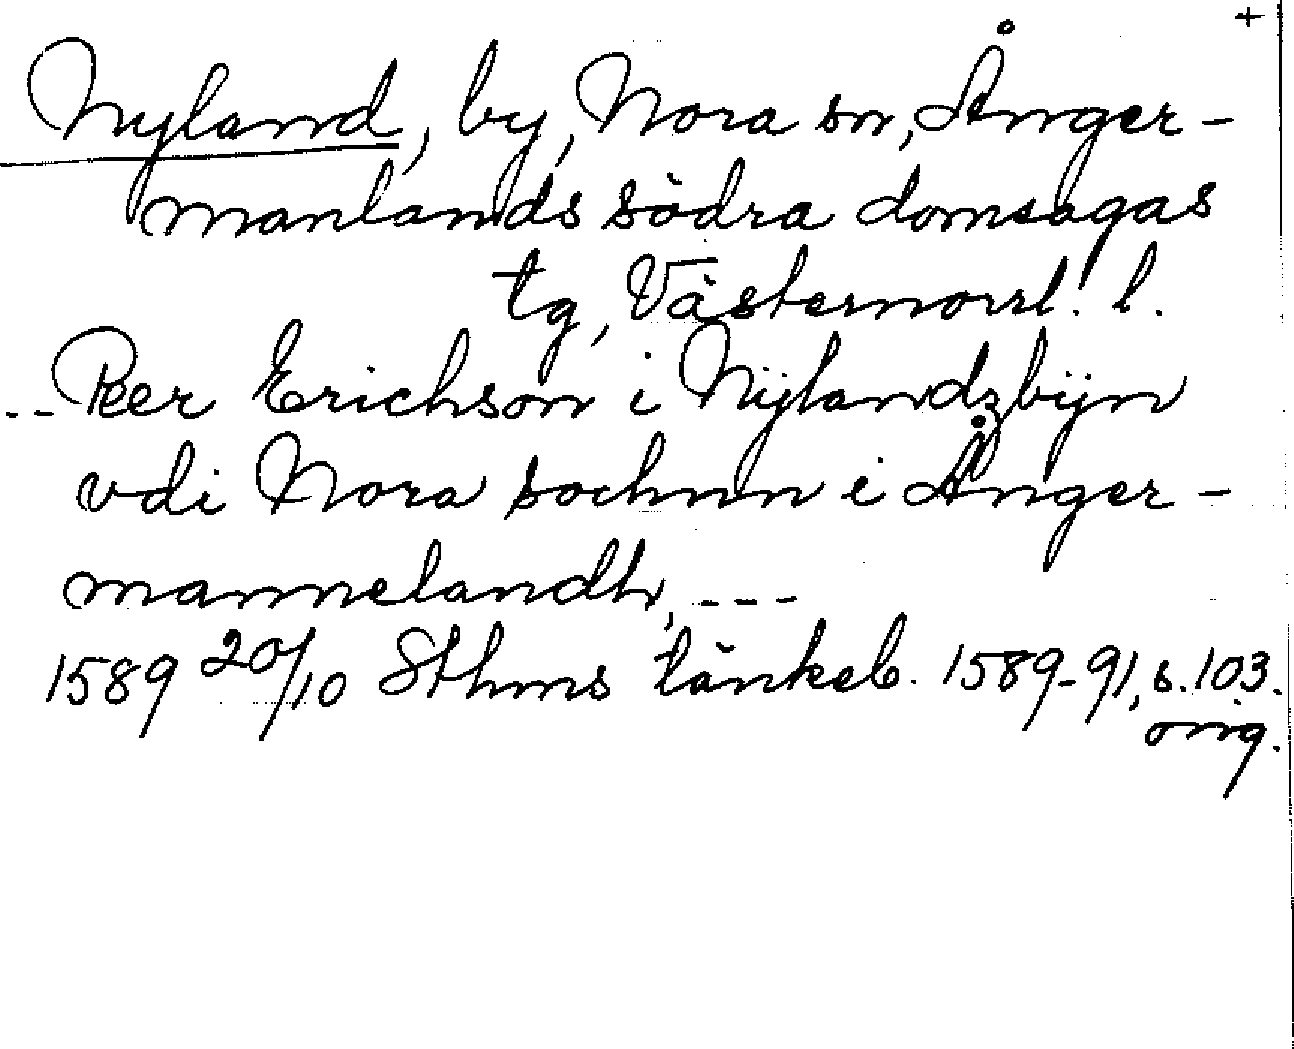 +
Nyland, by, Nora sn, Ånger-
manlands södra domsagas
tg, Västernorrl. l.
-- Peer Erichson i Nijlandzbijn
vdi Nora sochnn i Ånger-
mannelandh, ---
1589 20/10 Sthms tänkeb. 1589-91, s. 103.
orig.